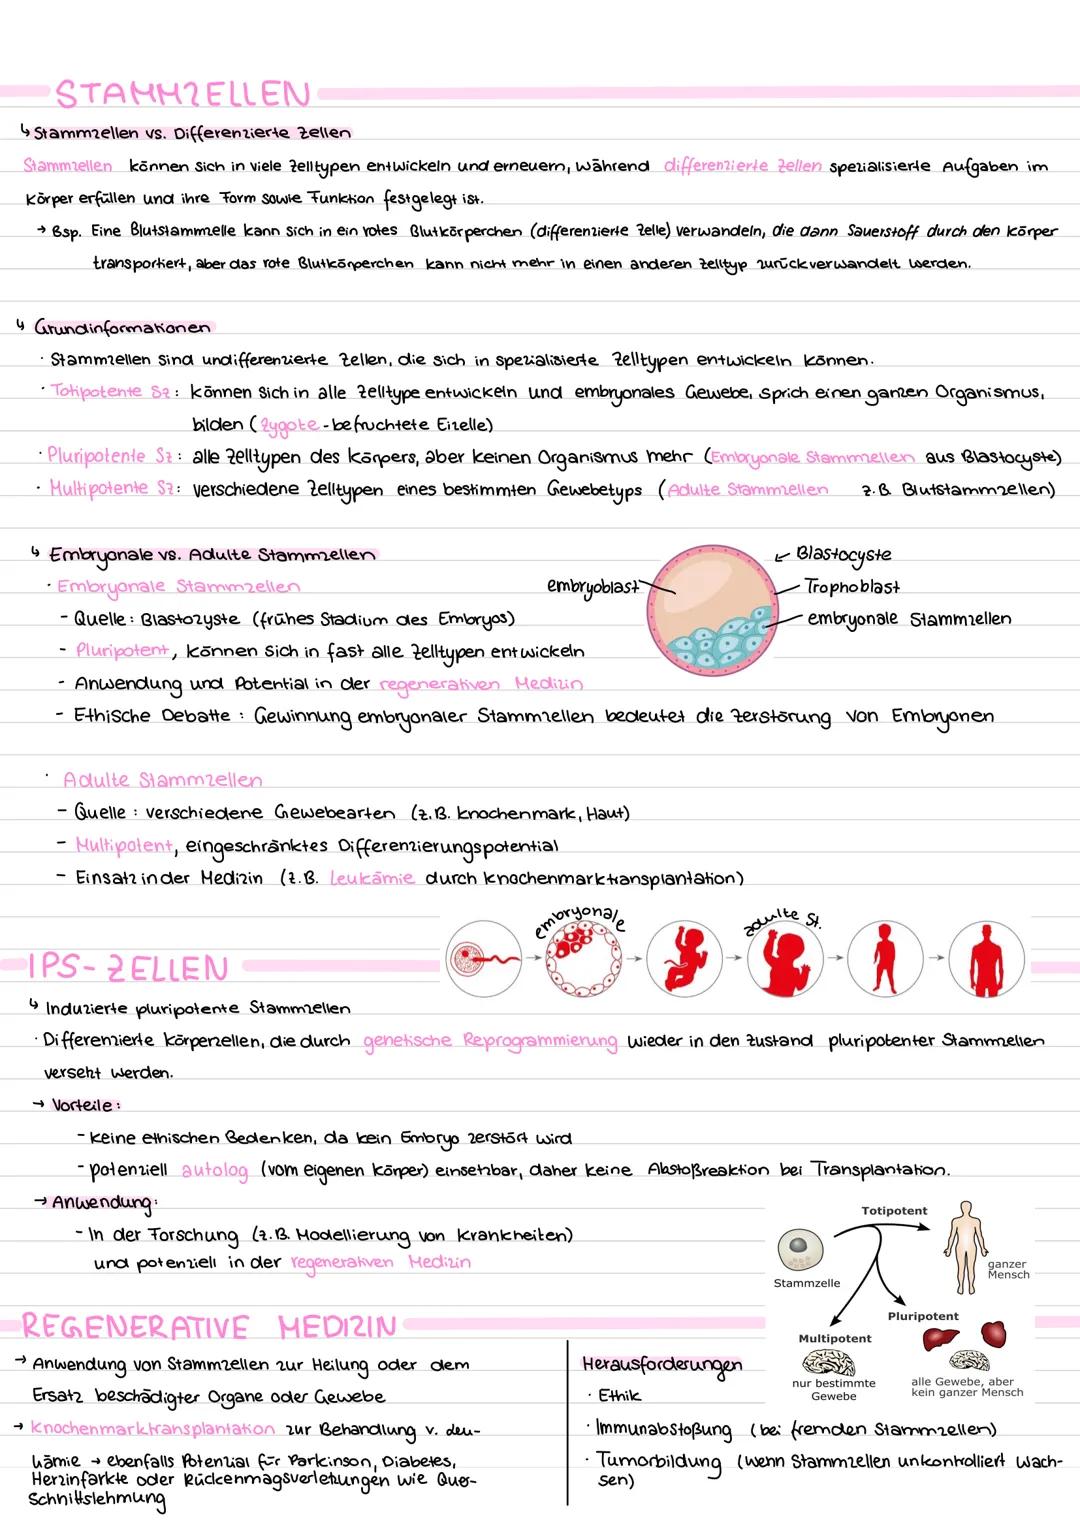 STAMMZELLEN
↳ Stammzellen vs. Differenzierte Zellen
Stammzellen können sich in viele Zelltypen entwickeln und erneuern, während differenzierte Zellen spezialisierte Aufgaben im
Körper erfüllen und ihre Form sowie Funktion festgelegt ist.
→ Bsp. Eine Blutstammzelle kann sich in ein rotes Blutkörperchen (differenzierte Zelle) verwandeln, die dann Sauerstoff durch den Körper
transportiert, aber das rote Blutkörperchen kann nicht mehr in einen anderen Zelltyp zurückverwandelt werden.
↳ Grundinformationen
· Stammzellen sind undifferenzierte Zellen, die sich in spezialisierte Zelltypen entwickeln können.
· Totipotente SZ: können sich in alle Zelltype entwickeln und embryonales Gewebe, sprich einen ganzen Organismus,
bilden (Zygote - befruchtete Eizelle)
· Pluripotente SZ: alle Zelltypen des Körpers, aber keinen Organismus mehr (Embryonale Stammzellen aus Blastocyste)
· Multipotente SZ: verschiedene Zelltypen eines bestimmten Gewebetyps (Adulte Stammzellen z.B. Blutstammzellen)
↳ Embryonale vs. Adulte Stammzellen
· Embryonale Stammzellen
- Quelle: Blastozyste (frühes Stadium des Embryos)
- Pluripotent, können sich in fast alle Zelltypen entwickeln
- Anwendung und Potential in der regenerativen Medizin
- Ethische Debatte: Gewinnung embryonaler Stammzellen bedeutet die Zerstörung von Embryonen
embryoblast
← Blastocyste
Trophoblast
embryonale Stammzellen
· Adulte Stammzellen
- Quelle: verschiedene Gewebearten (z.B. Knochenmark, Haut)
- Multipotent, eingeschränktes Differenzierungspotential
- Einsatz in der Medizin (z.B. Leukämie durch Knochenmarktransplantation)
embryonale
adulte St.
IPS-ZELLEN
↳ Induzierte pluripotente Stammzellen
· Differenzierte Körperzellen, die durch genetische Reprogrammierung wieder in den Zustand pluripotenter Stammzellen
versetzt werden.
→ Vorteile:
- keine ethischen Bedenken, da kein Embryo zerstört wird
- potenziell autolog (vom eigenen Körper) einsetzbar, daher keine Abstoßreaktion bei Transplantation.
→ Anwendung:
- In der Forschung (z.B. Modellierung von Krankheiten)
und potenziell in der regenerativen Medizin
Totipotent
Stammzelle
ganzer
Mensch
Pluripotent
Multipotent
nur bestimmte
Gewebe
alle Gewebe, aber
kein ganzer Mensch
REGENERATIVE MEDIZIN
→ Anwendung von Stammzellen zur Heilung oder dem
Ersatz beschädigter Organe oder Gewebe
→ Knochenmarktransplantation zur Behandlung v. Leu-
kämie → ebenfalls Potenzial für Parkinson, Diabetes,
Herzinfarkte oder Rückenmagsverletzungen wie Quer-
schnittslehmung
Herausforderungen
· Ethik
· Immunabstoßung (bei fremden Stammzellen)
· Tumorbildung (wenn Stammzellen unkontrolliert wach-
sen)